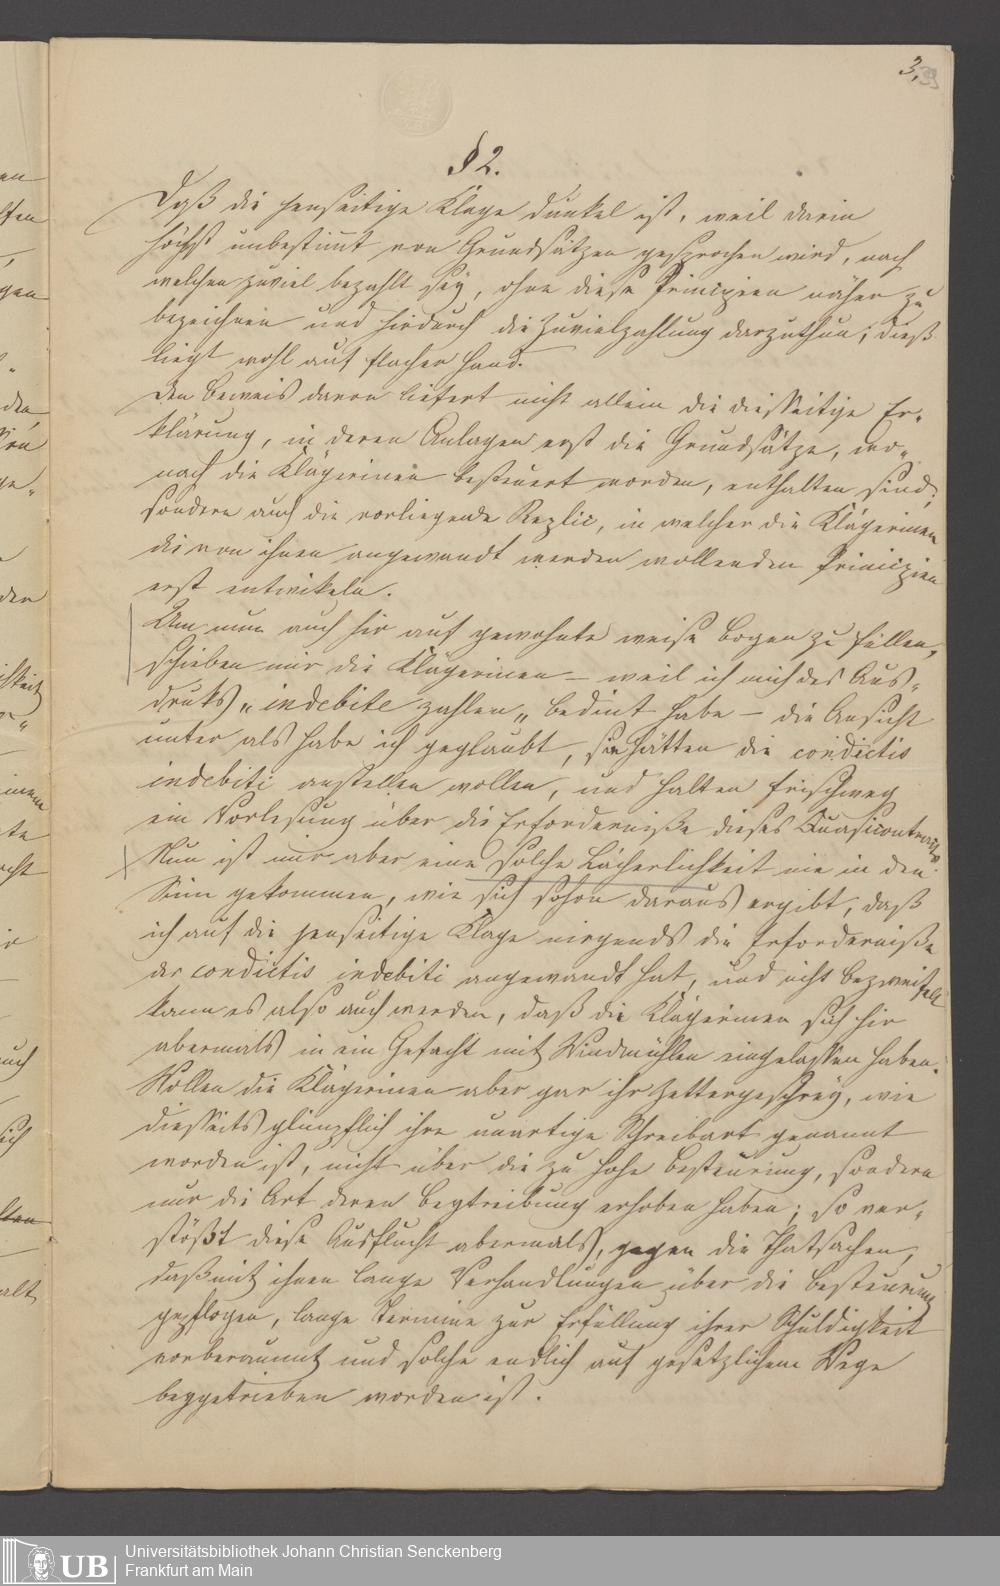 3.
§ 2.
Daß die jenseitige Klage dunkel ist, weil darin
höchst unbestimt von Grundsätzen gesprochen wird, nach
welchen zuviel bezahlt sey, ohne diese Prinzipien näher zu
bezeichnen und hirdurch die Zuvielzahlung darzuthun; dieß
liegt wohl auf flacher Hand.
Den Beweis davon liefert nicht allein die diesseitige Er-
klärung, in deren Anlagen erst die Grundsätze, wo-
nach die Klägerinen besteuert worden, enthalten sind,
sondern auch die vorliegende Replic, in welcher die Klägerinen
die von ihnen angewandt werden wollenden Prinizpien
erst entwikeln.
Um nun auch hir auf gewohnte weise Bogen zu füllen,
schieben mir die Klägerinen – weil ich mich des Aus-
druks „indebite zahlen„ bedint habe – die Ansicht
unter als habe ich geglaubt, sie hätten die condictis
indebiti anstellen wollen, und halten frischweg
ein Vorlesung über die Erforderniße dieses Quasicontracts
Nun ist mir aber eine solche Lächerlichkeit nie in den
Sinn gekommen, wie sich schon daraus ergibt, daß
ich auf die jenseitige Klage nirgends die Erforderniße
der condictis indebiti angewandt hat, und nicht bezweifelt
kann es also auch werden, daß die Klägerinen sich hir
abermals in ein Gefecht mit Windmühlen eingelassen haben.
Wollen die Klägerinen aber gar ihr Zettergeschrey, wie
diesseits glimpflich ihre unartige Schreibart genannt
worden ist, nicht über die zu hohe Besteurung, sondern
nur die Art deren Beytreibung erhoben haben; so ver-
stößt diese Ausflucht abermals, gegen die Thatsachen,
daß mit ihnen lange Verhandlungen über die Besteurung
gepflogen, lange Termine zur Erfüllung ihrer Schuldigkeit
vorberaumt und solche endlich auf gesetzlichem Wege
beygetrieben worden ist.
UB
Universitätsbibliothek Johann Christian Senckenberg
Frankfurt am Main